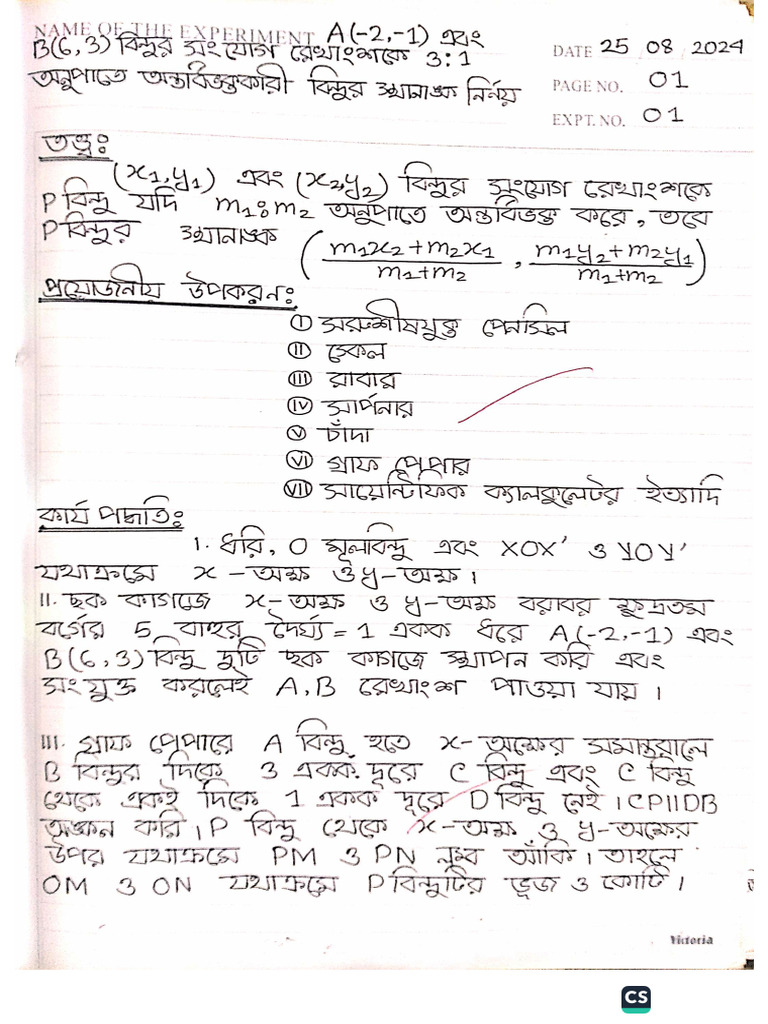 NAME OF THE EXPERIMENT A(-2,-1) এবং
B(6,3) বিন্দুর সংযোগ রেখাংশকে 3:1
অনুপাতে অন্তর্বিভক্তকারী বিন্দুর স্থানাঙ্ক নির্ণয়
DATE 25/08/2024
PAGE NO. 01
EXPT. NO. 01
তত্ত্ব:
(x1,y1) এবং (x2,y2) বিন্দুর সংযোগ রেখাংশকে
P বিন্দু যদি m1:m2 অনুপাতে অন্তর্বিভক্ত করে, তবে
P বিন্দুর স্থানাঙ্ক (m1x2+m2x1/m1+m2, m1y2+m2y1/m1+m2)
প্রয়োজনীয় উপকরন:
I সরুশীষযুক্ত পেনসিল
II স্কেল
III রাবার
IV সার্পনার
V চাঁদা
VI গ্রাফ পেপার
VII সায়েন্টিফিক ক্যালকুলেটর ইত্যাদি
কার্য পদ্ধতি:
I. ধরি, O মূলবিন্দু এবং XOX' ও YOY'
যথাক্রমে x-অক্ষ ও y-অক্ষ।
II. ছক কাগজে x-অক্ষ ও y-অক্ষ বরাবর ক্ষুদ্রতম
বর্গের 5 বাহুর দৈর্ঘ্য = 1 একক ধরে A(-2,-1) এবং
B(6,3) বিন্দু দুটি ছক কাগজে স্থাপন করি এবং
সংযুক্ত করলেই A,B রেখাংশ পাওয়া যায়।
III. গ্রাফ পেপারে A বিন্দু হতে x-অক্ষের সমান্তরালে
B বিন্দুর দিকে 3 একক দূরে C বিন্দু এবং C বিন্দু
থেকে একই দিকে 1 একক দূরে D বিন্দু নেই। CP||DB
অঙ্কন করি। P বিন্দু থেকে x-অক্ষ ও y-অক্ষের
উপর যথাক্রমে PM ও PN লম্ব আঁকি। তাহলে
OM ও ON যথাক্রমে P বিন্দুটির ভূজ ও কোটি।
Victoria
CS